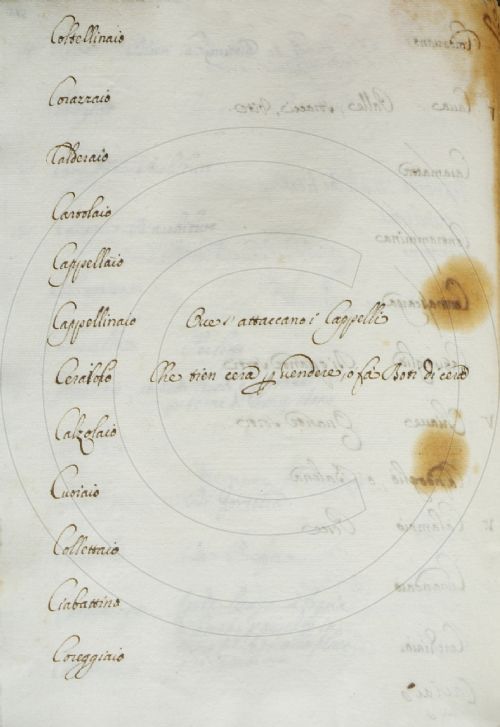 Coltellinaio
Corazzaio
Calderaio
Cartolaio
Cappellaio
Cappellinaio Ove s'attaccano i Cappelli
Ceraiolo Che tien cera p vendere, o fa Boti di cera
Calzolaio
Cuoiaio
Collettaio
Ciabattino
Coreggiaio